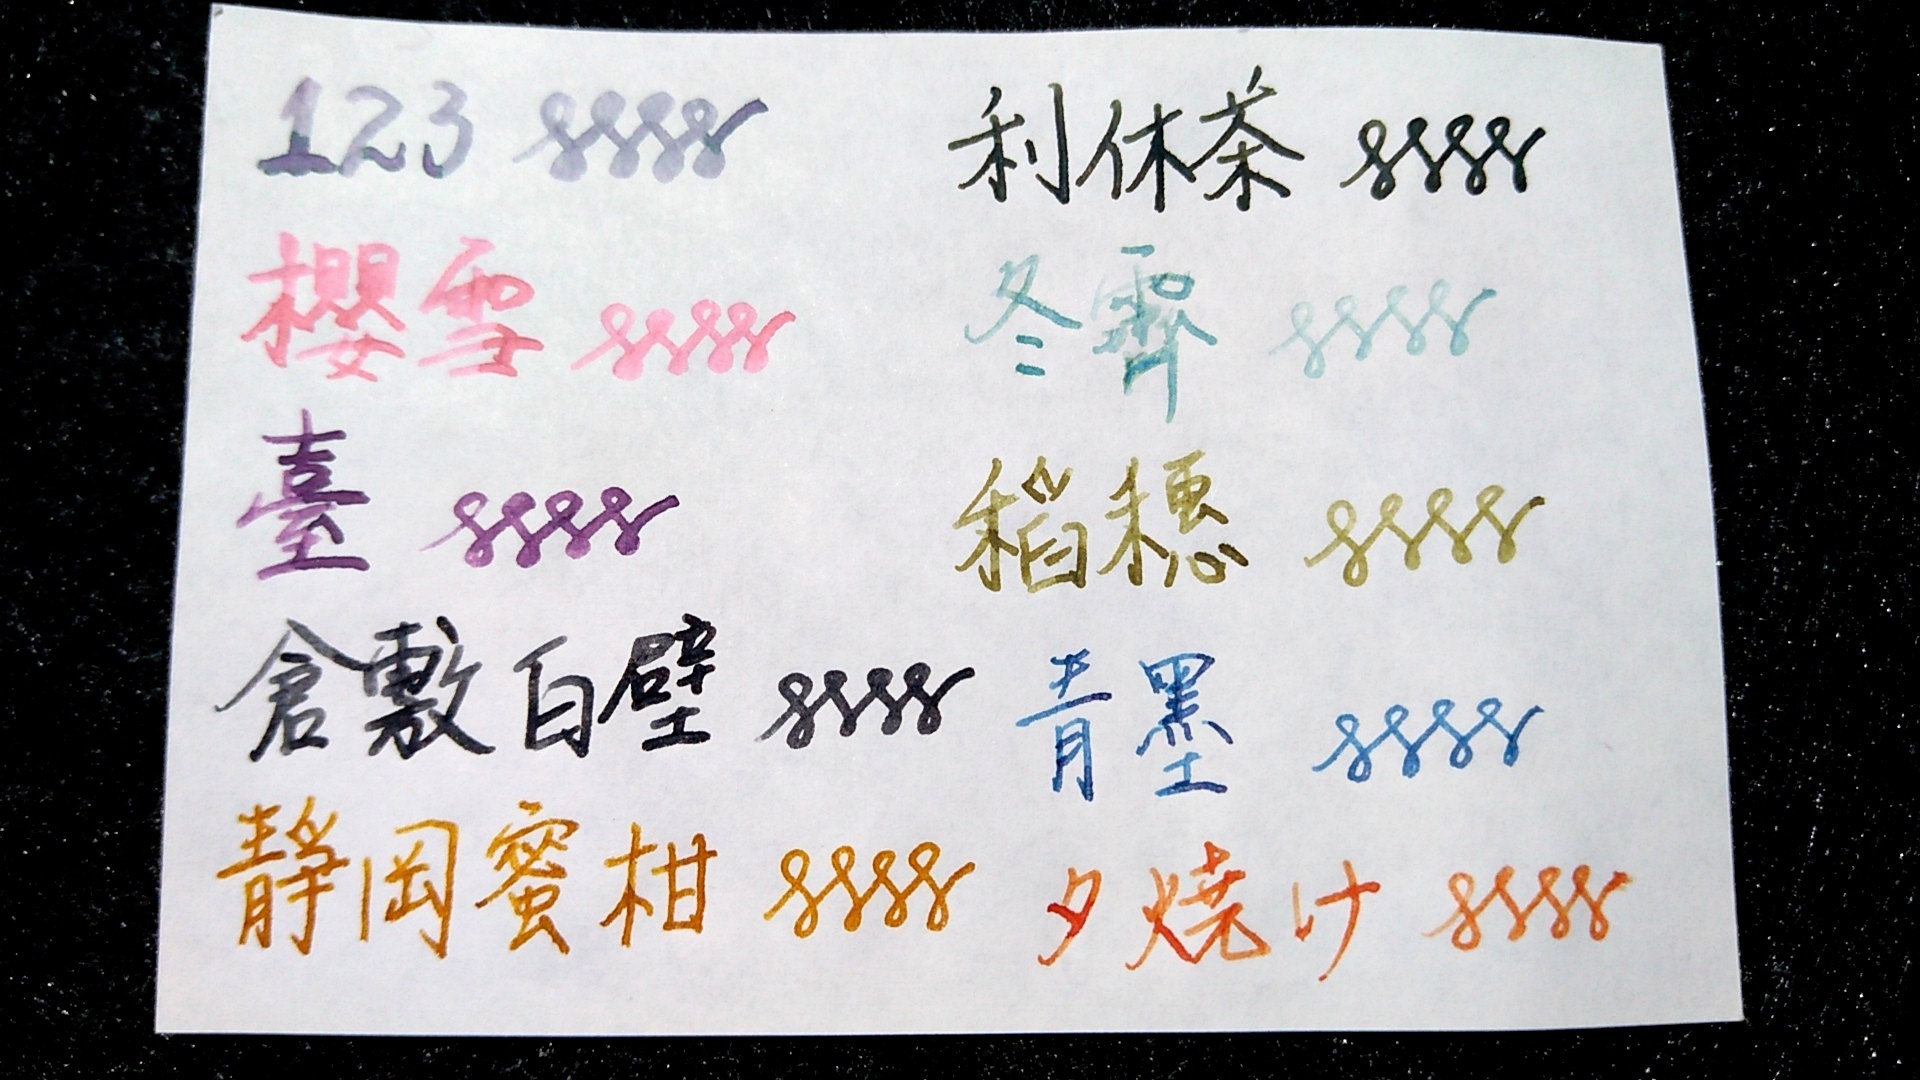 123
櫻雪
臺
倉敷白壁
靜岡蜜柑
利休茶
冬霽
稻穗
青墨
夕燒け